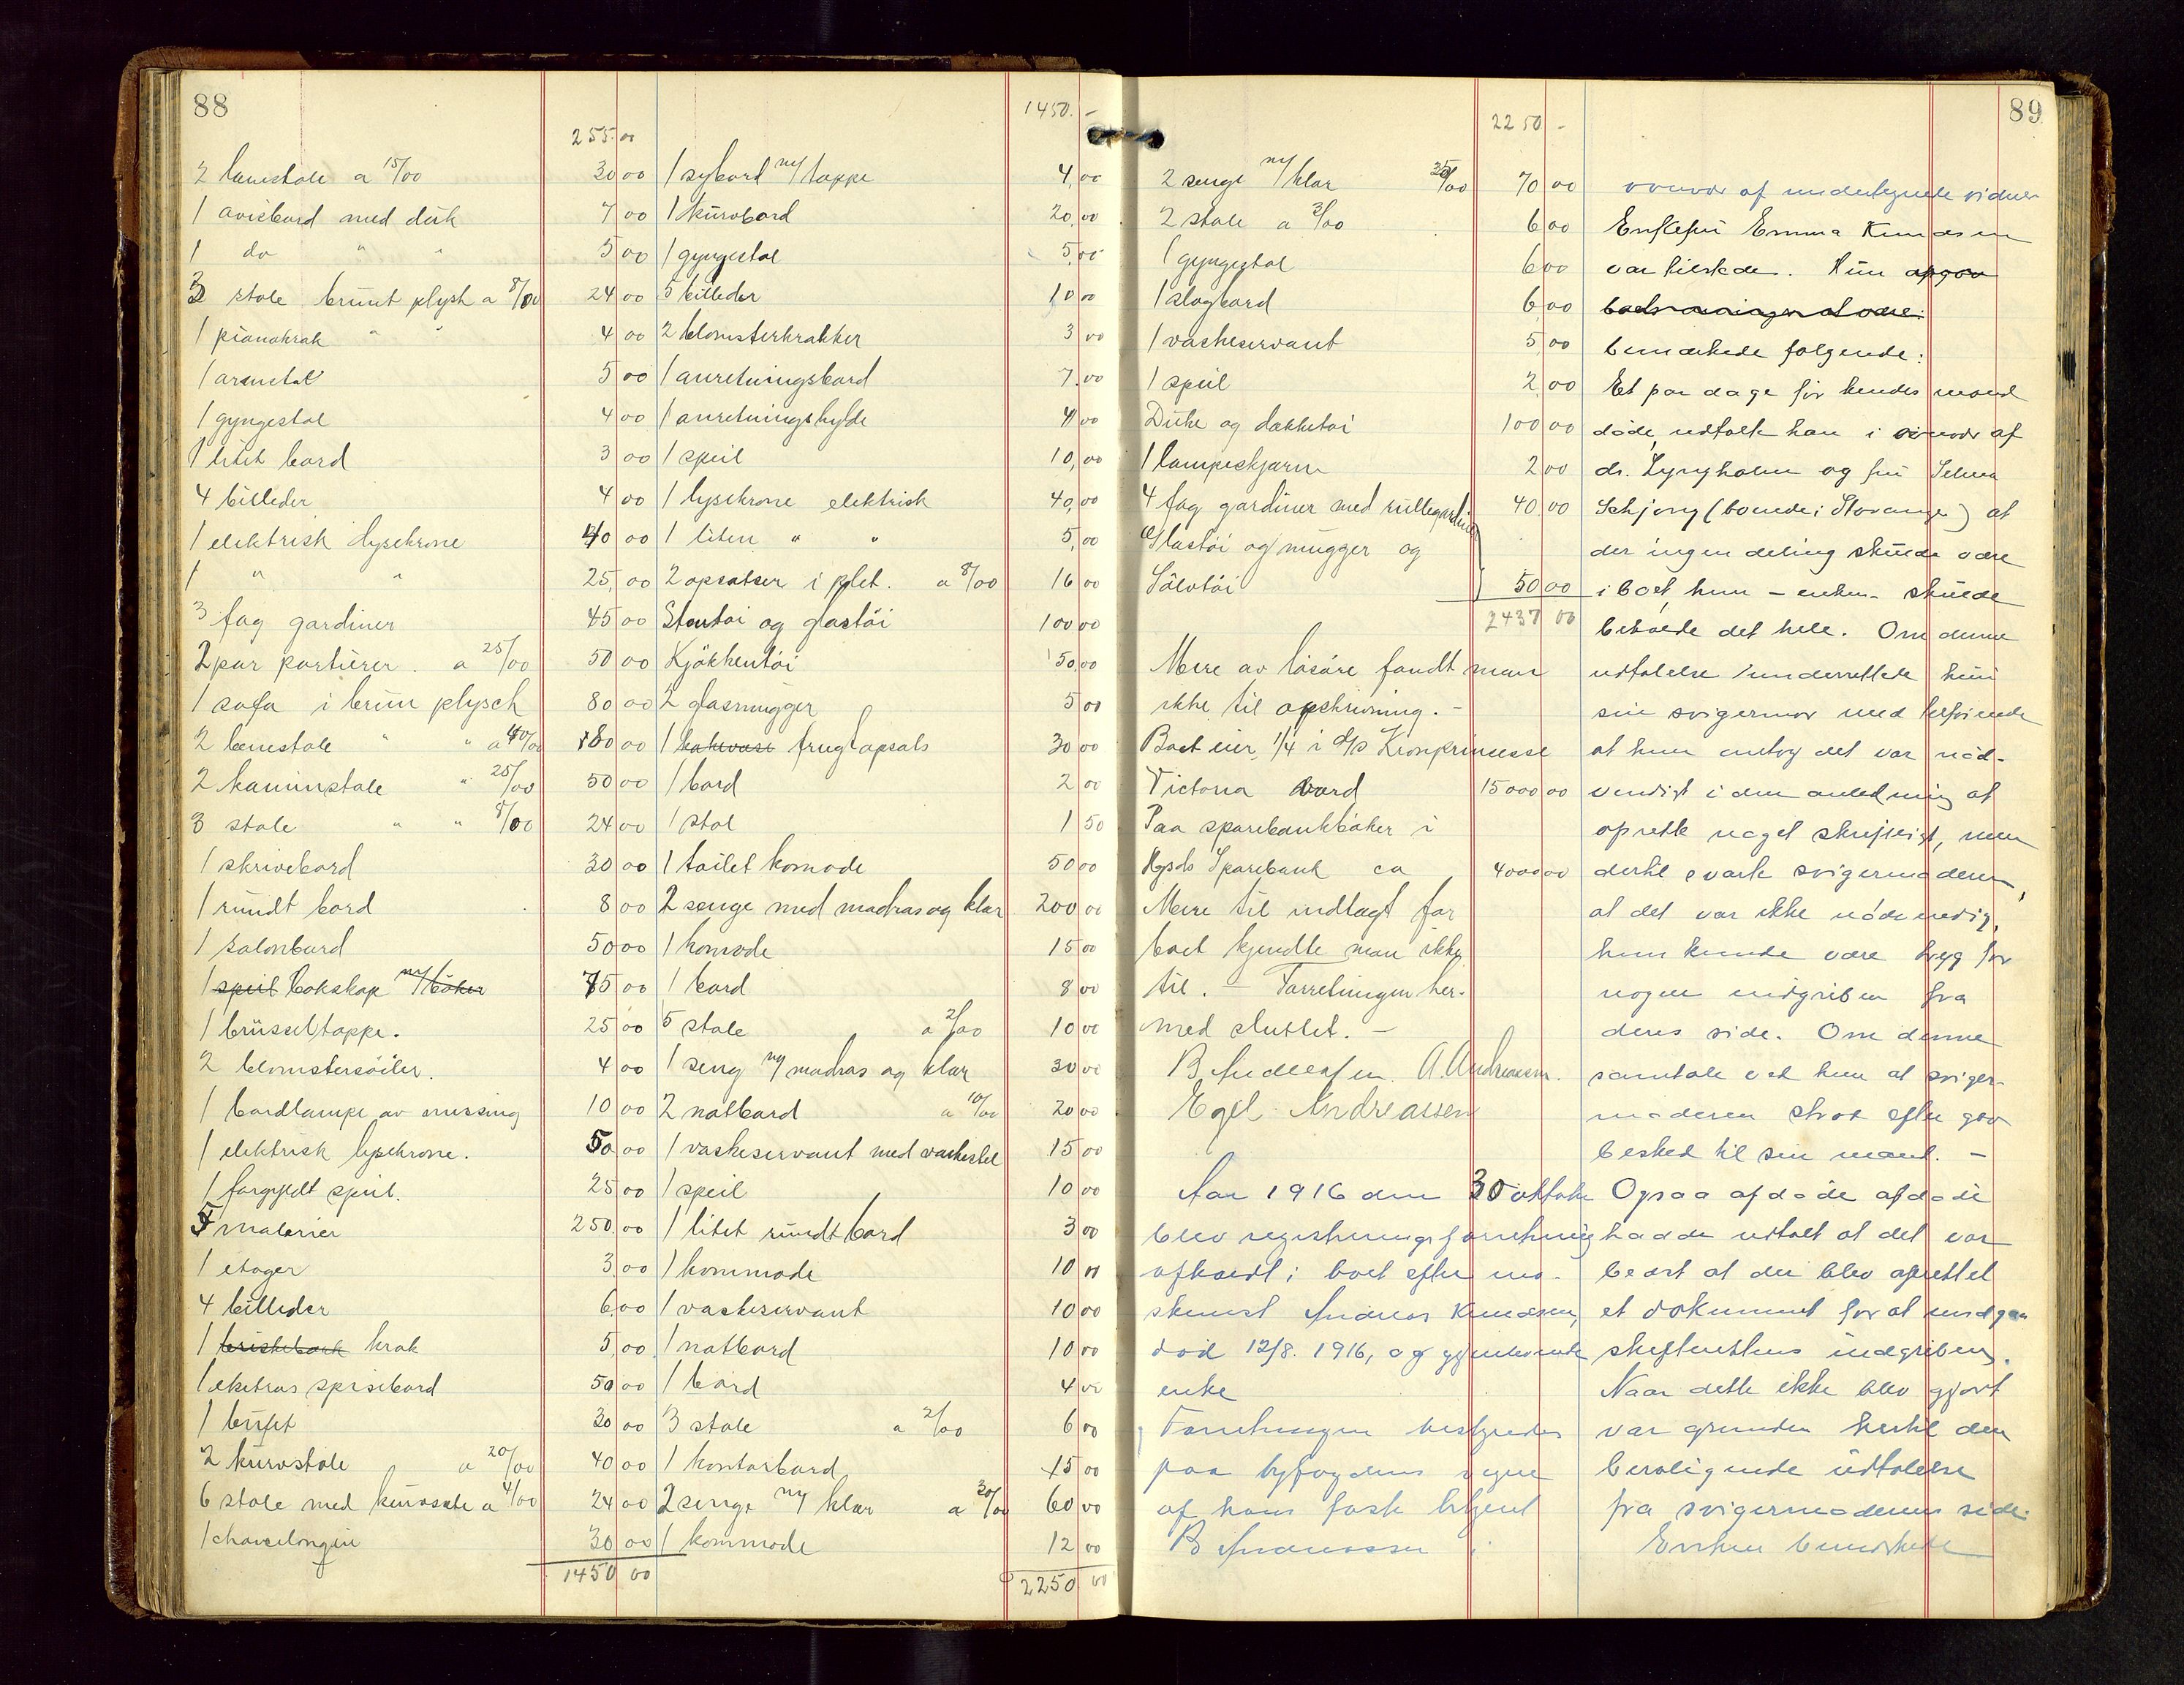 88
255.00
2 lænestole a 15/00 30 00
1 avisbord med duk 7 00
1 do " " 5 00
3 stole brunt plysh a 8/00 24 00
1 pianokrak " " 4 00
1 armstol 5 00
1 gyngestol 4 00
1 litet bord 3 00
4 billeder 4 00
1 elektrisk lysekrone 40 00
1 " " 25,00
3 fag gardiner 45 00
2 par portierer. a 25/00 50 00
1 sofa i brun plysch 80 00
2 lænestole " " a 40/00 80 00
2 kaminstole " 25/00 50 00
3 stole " " 8/00 24 00
1 skrivebord 30 00
1 rundt bord 8 00
1 salonbord 50 00
1 speil bokskap m/ bøker 75 00
1 brüsseltæppe. 25 00
2 blomstersöiler. 4 00
1 bordlampe av messing 10 00
1 elektrisk lysekrone. 50 00
1 forgyldt speil. 25 00
5 malerier 250.00
1 etager 3.00
4 billeder 6,00
1 krak 5,00
1 eketræs spisebord 50 00
1 buffet 30 00
2 kurvstole a 20/00 40 00
6 stole med kurvsæte a 4/00 24 00
1 chaiselongue 30 00
1450 00
1450.-
1 sybord m/ tæppe 4,00
1 kurvbord 20,00
1 gyngestol 5,00
5 billeder 10 00
2 blomsterkrakker 3 00
1 anretningsbord 7.00
1 anretningshylde 4 00
1 speil 10,00
1 lysekrone elektrisk 40,00
1 liten " " 5,00
2 opsatser i plet. a 8/00 16 00
Stentøi og glastöi 100 00
Kjökkentöi 50.00
2 glasmugger 5 00
1 kakevase frugtopsats 30 00
1 bord 2 00
1 stol 1 50
1 toilet komode 50 00
2 senge med madras og klær 200 00
1 komode 15 00
1 bord 8 00
5 stole a 2/00 10 00
1 seng m/ madras og klær 30 00
2 natbord a 10/00 20 00
1 vaskeservant med vaskestel 15 00
1 speil 10 00
1 litet rundt bord 3 00
1 kommode 10 00
1 vaskeservant 10 00
1 natbord 10 00
1 bord 4 00
3 stole a 2/00 6 00
1 kontorbord 15 00
2 senge m/ klær a 30/00 60 00
1 kommode 12 00
2250 00
2250 -
2 senge m/ klær 35/00 70 00
2 stole a 3/00 6 00
1 gyngestol 6 00
1 slagbord 6,00
1 vaskeservant 5,00
1 speil 2,00
Duke og dækketøi 100 00
1 lampeskjærm 2 00
4 fag gardiner med rullegardiner 40 00
Glastöi og mugger og
Sölvtöi 50 00
2437 00
Mere av lösöre fandt man
ikke til opskrivning. -
Boet eier 1/4 i d/s Kronprincesse
Victoria værd 15000 00
Paa sparebankbøker i
Hgsds Sparebank ca 4000 00
Mere til indtægt for
boet kjendte man ikke
til. - Forretningen her-
med sluttet. -
B Andreassen. A. Andreassen.
Egel Andreassen
Aar 1916 den 30 oktober
blev registreringsforretning
afholdt i boet efter ma-
skinist Andreas Knudsen,
död 12/8. 1916, og gjenlevende
enke
Forretningen bestyredes
paa byfogdens vegne
af hans faste betjent
B Andreassen i
89
overvær af undertegnede vidner
Enkefru Emma Knudsen
var tilstede. Hun opgav
bemærkede følgende:
Et par dage før hendes mand
døde, udtalte han i overvær af
dr. Lyngholm og fru Selma
Schjong (boende i Stavanger) at
der ingen deling skulde være
i boet, hun - enken - skulde
beholde det hele. Om denne
udtalelse underrettede hun
sin svigermor med tilføiende
at hun antog det var nød-
vendigt i den anledning at
oprette noget skriftligt, men
dertil svarte svigermoderen,
at det var ikke nødvendig,
hun kunde være tryg for
nogen indgriben fra
deres side. Om denne
samtale ved hun at sviger-
moderen strax efter gav
besked til sin mand. -
Ogsaa afdøde afdøde
hadde udtalt at det var
bedst at der blev oprettet
et dokument for at undgaa
skifterettens indgriben.
Naar dette ikke blev gjort
var grunden hertil den
beroligende udtalelse
fra svigermoderens side.
Enken bemerkede